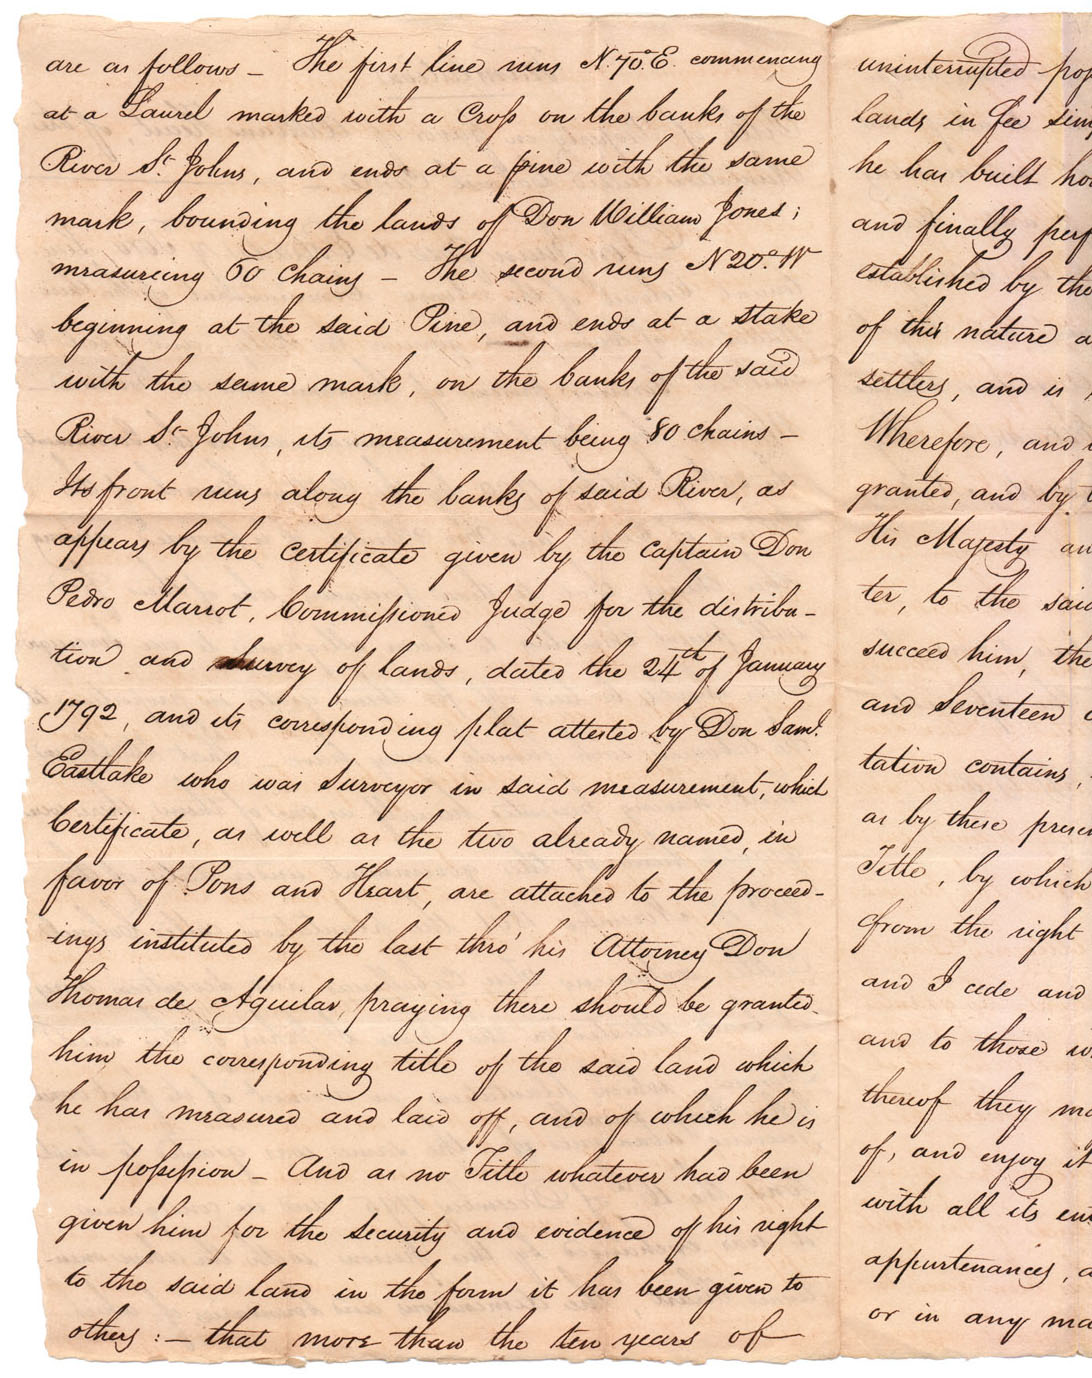 are as follows — The first line runs N. 70° E. commencing
at a Laurel marked with a Cross on the banks of the
River St. Johns, and ends at a pine with the same
mark, bounding the lands of Don William Jones;
measureing 60 chains — The second runs N 20° W
beginning at the said Pine, and ends at a stake
with the same mark, on the banks of the said
River St. Johns, its measurement being 80 chains —
Its front runs along the banks of said River, as
appears by the certificate given by the Captain Don
Pedro Marrot, Commissioned Judge for the distribu-
tion and Survey of lands, dated the 24th of January
1792, and its corresponding plat attested by Don Saml.
Eastlake who was Surveyor in said measurement, which
Certificate, as well as the two already named, in
favor of Pons and Heart, are attached to the proceed-
-ings instituted by the last thro' his Attorney Don
Thomas de Aguilar, praying there should be granted
him the corresponding title of the said land which
he has measured and laid off, and of which he is
in possession — And as no Title whatever had been
given him for the security and evidence of his right
to the said land in the form it has been given to
others: — that more than the ten years of
uninterrupted
lands in fee
he has built
and finally
established by the
of this nature
settlers, and is
Wherefore, and
granted, and by
His Majesty
ter, to the said
succeed him, the
and Seventeen
tation contains,
as by these
Title, by which
from the right
and I cede and
and to those
thereof they
of, and enjoy it
with all its
appurtenances,
or in any